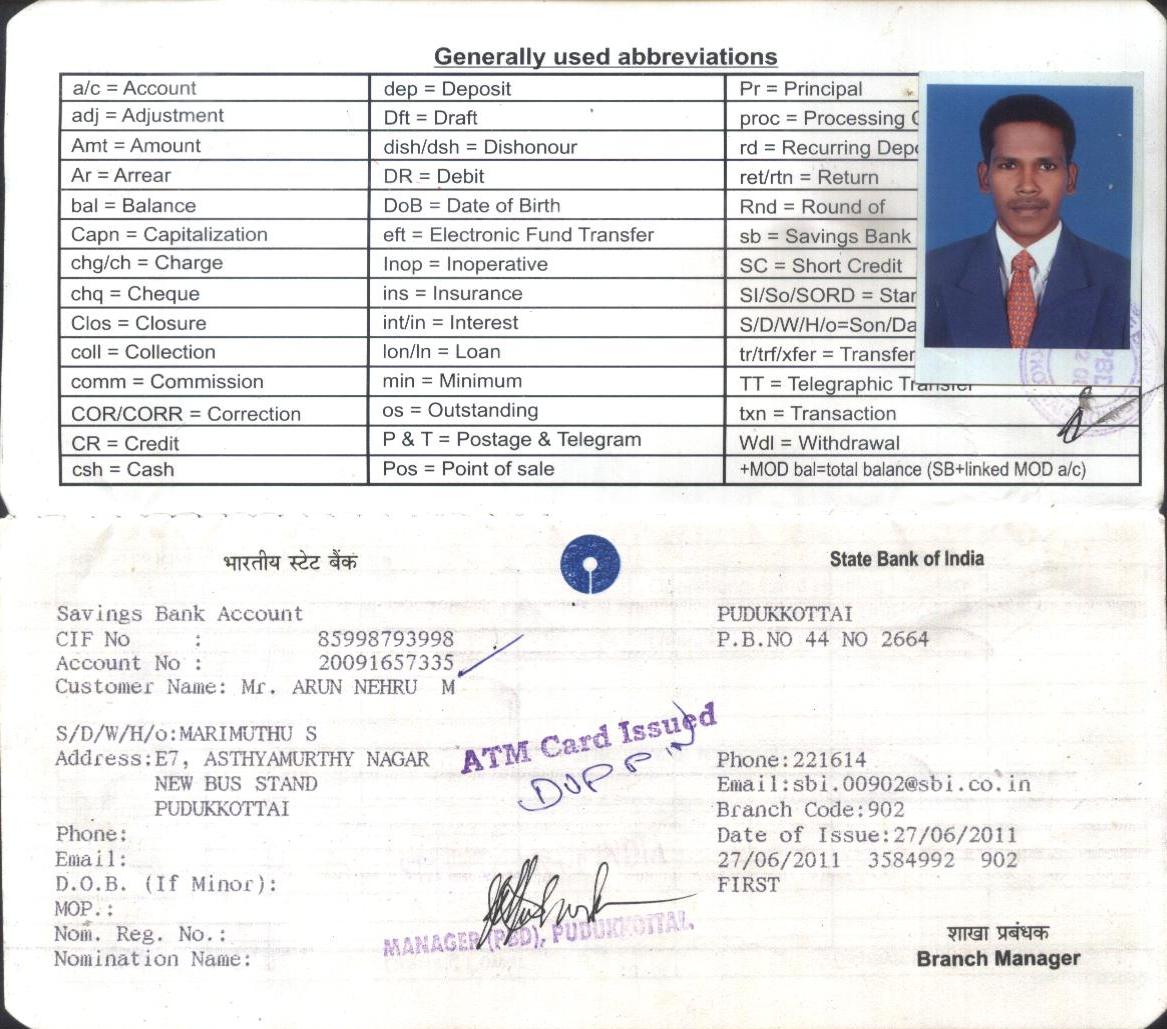 Generally used abbreviations
a/c = Account
adj = Adjustment
Amt = Amount
Ar = Arrear
bal = Balance
Capn = Capitalization
chg/ch = Charge
chq = Cheque
Clos = Closure
coll = Collection
comm = Commission
COR/CORR = Correction
CR = Credit
csh = Cash
dep = Deposit
Dft = Draft
dish/dsh = Dishonour
DR = Debit
DoB = Date of Birth
eft = Electronic Fund Transfer
Inop = Inoperative
ins = Insurance
int/in = Interest
lon/ln = Loan
min = Minimum
os = Outstanding
P & T = Postage & Telegram
Pos = Point of sale
Pr = Principal
proc = Processing
rd = Recurring
ret/rtn = Return
Rnd = Round of
sb = Savings Bank
SC = Short Credit
SI/So/SORD =
S/D/W/H/o=Son/
tr/trf/xfer = Transfer
TT = Telegraphic Transfer
txn = Transaction
Wdl = Withdrawal
+MOD bal=total balance (SB+linked MOD a/c)
भारतीय स्टेट बैंक
State Bank of India
Savings Bank Account
CIF No : 85998793998
Account No : 20091657335
Customer Name: Mr. ARUN NEHRU M
S/D/W/H/o:MARIMUTHU S
Address:E7, ASTHYAMURTHY NAGAR
NEW BUS STAND
PUDUKKOTTAI
Phone:
Email:
D.O.B. (If Minor):
MOP.:
Nom. Reg. No.:
Nomination Name:
ATM Card Issued
MANAGER (PBD), PUDUKKOTTAI.
PUDUKKOTTAI
P.B.NO 44 NO 2664
Phone:221614
Email:sbi.00902@sbi.co.in
Branch Code:902
Date of Issue:27/06/2011
27/06/2011 3584992 902
FIRST
शाखा प्रबंधक
Branch Manager